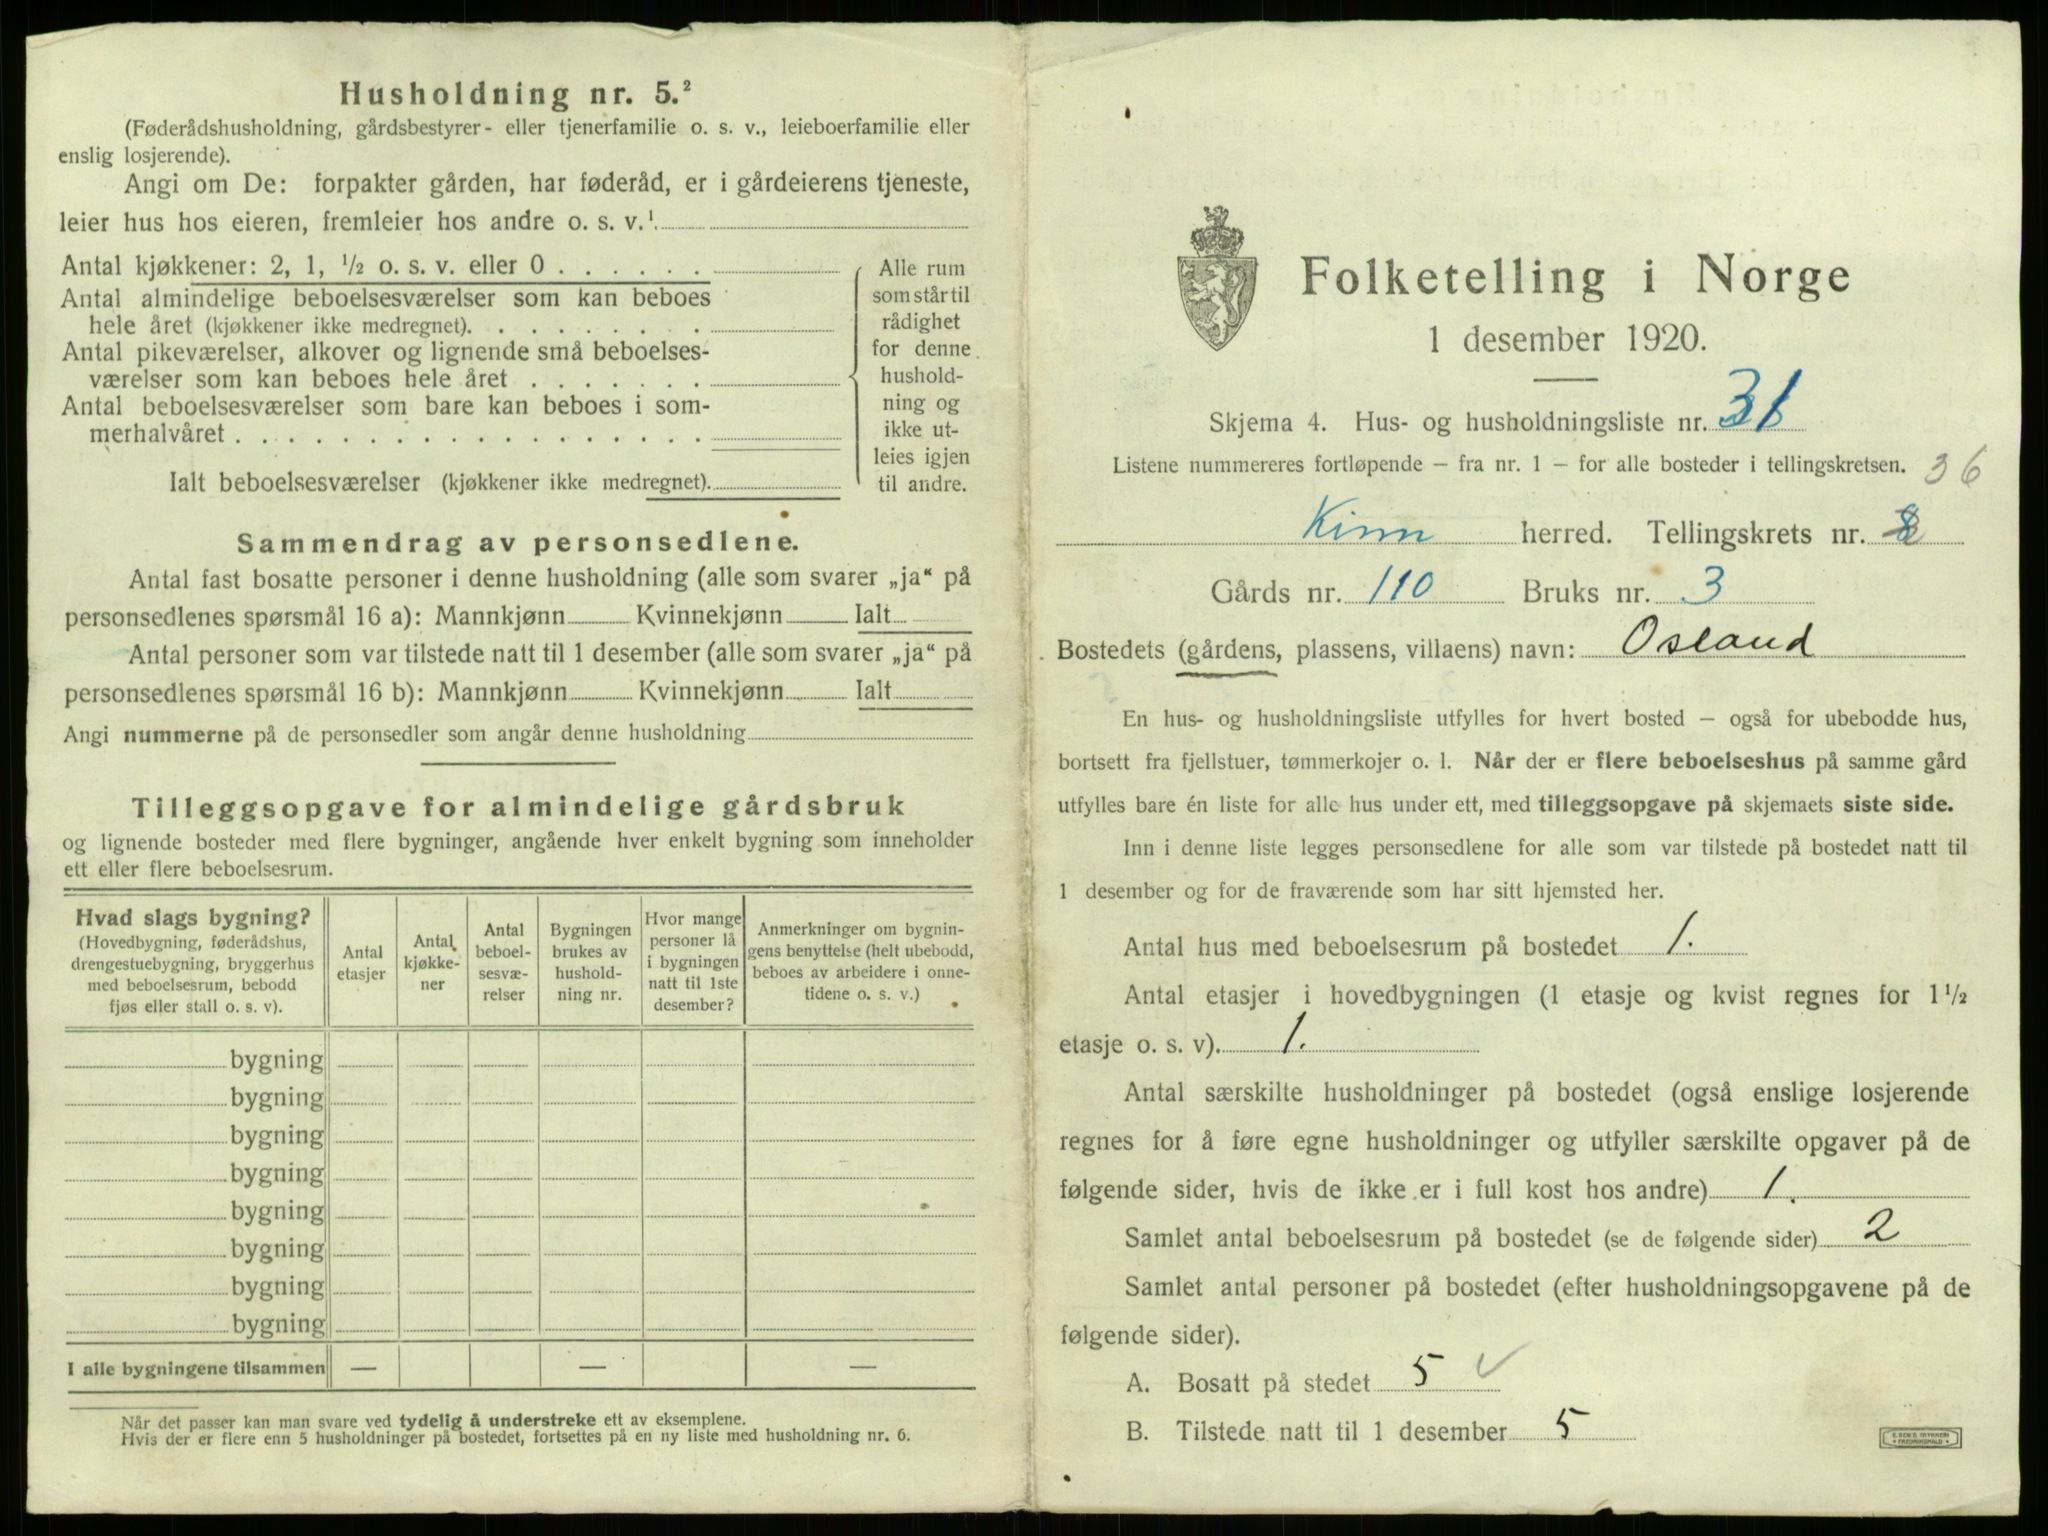 Husholdning nr. 5.²
(Føderådshusholdning, gårdsbestyrer- eller tjenerfamilie o. s. v., leieboerfamilie eller
enslig losjerende).
Angi om De: forpakter gården, har føderåd, er i gårdeierens tjeneste,
leier hus hos eieren, fremleier hos andre o. s. v.¹
Antal kjøkkener: 2, 1, ½ o. s. v. eller 0 . . . . . .
Antal almindelige beboelsesværelser som kan beboes
hele året (kjøkkener ikke medregnet). . . . . . . . .
Antal pikeværelser, alkover og lignende små beboelses-
værelser som kan beboes hele året . . . . . . .
Antal beboelsesværelser som bare kan beboes i som-
merhalvåret . . . . . . . . . . . . . . . . . .
Ialt beboelsesværelser (kjøkkener ikke medregnet).
Alle rum
som står til
rådighet
for denne
hushold-
ning og
ikke ut-
leies igjen
til andre.
Sammendrag av personsedlene.
Antal fast bosatte personer i denne husholdning (alle som svarer „ja“ på
personsedlenes spørsmål 16 a): Mannkjønn Kvinnekjønn Ialt
Antal personer som var tilstede natt til 1 desember (alle som svarer „ja“ på
personsedlenes spørsmål 16 b): Mannkjønn Kvinnekjønn Ialt
Angi nummerne på de personsedler som angår denne husholdning
Tilleggsopgave for almindelige gårdsbruk
og lignende bosteder med flere bygninger, angående hver enkelt bygning som inneholder
ett eller flere beboelsesrum.
Hvad slags bygning?
(Hovedbygning, føderådshus,
drengestuebygning, bryggerhus
med beboelsesrum, bebodd
fjøs eller stall o. s. v).
Antal
etasjer
Antal
kjøkke-
ner
Antal
beboel-
sesvæ-
relser
Bygningen
brukes av
hushold-
ning nr.
Hvor mange
personer lå
i bygningen
natt til 1ste
desember?
Anmerkninger om bygnin-
gens benyttelse (helt ubebodd,
beboes av arbeidere i onne-
tidene o. s. v.)
bygning
bygning
bygning
bygning
bygning
bygning
bygning
bygning
I alle bygningene tilsammen — — —
Når det passer kan man svare ved tydelig å understreke ett av eksemplene.
Hvis der er flere enn 5 husholdninger på bostedet, fortsettes på en ny liste med husholdning nr. 6.
Folketelling i Norge
1 desember 1920.
Skjema 4. Hus- og husholdningsliste nr. 31
Listene nummereres fortløpende – fra nr. 1 – for alle bosteder i tellingskretsen. 36
Kinn herred. Tellingskrets nr. 8
Gårds nr. 110 Bruks nr. 3
Bostedets (gårdens, plassens, villaens) navn: Osland
En hus- og husholdningsliste utfylles for hvert bosted – også for ubebodde hus,
bortsett fra fjellstuer, tømmerkojer o. l. Når der er flere beboelseshus på samme gård
utfylles bare én liste for alle hus under ett, med tilleggsopgave på skjemaets siste side.
Inn i denne liste legges personsedlene for alle som var tilstede på bostedet natt til
1 desember og for de fraværende som har sitt hjemsted her.
Antal hus med beboelsesrum på bostedet 1.
Antal etasjer i hovedbygningen (1 etasje og kvist regnes for 1 ½
etasje o. s. v). 1.
Antal særskilte husholdninger på bostedet (også enslige losjerende
regnes for å føre egne husholdninger og utfyller særskilte opgaver på de
følgende sider, hvis de ikke er i full kost hos andre) 1.
Samlet antal beboelsesrum på bostedet (se de følgende sider) 2
Samlet antal personer på bostedet (efter husholdningsopgavene på de
følgende sider).
A. Bosatt på stedet 5 ✓
B. Tilstede natt til 1 desember 5